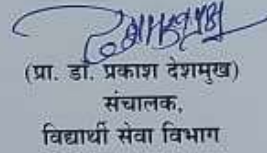 (प्रा. डॉ. प्रकाश देशमुख)
संचालक,
विद्यार्थी सेवा विभाग